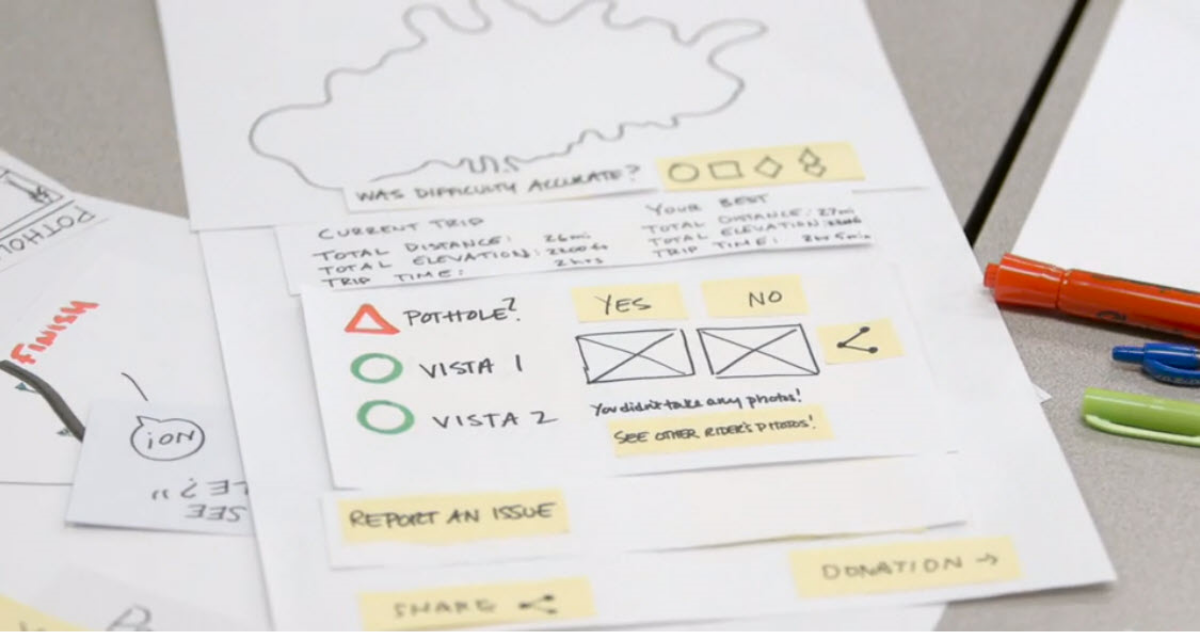 WAS DIFFICULTY ACCURATE?
CURRENT TRIP
TOTAL DISTANCE: 26mi
TOTAL ELEVATION:
TRIP TIME: 2hrs
YOUR BEST
TOTAL DISTANCE: 27mi
TOTAL ELEVATION:
TRIP TIME: 2hr 5min
POTHOLE? YES NO
VISTA 1
VISTA 2
You didn't take any photos!
SEE OTHER RIDER'S PHOTOS!
REPORT AN ISSUE
DONATION →
SHARE
FINISH
POTHOL
NO!
SEE